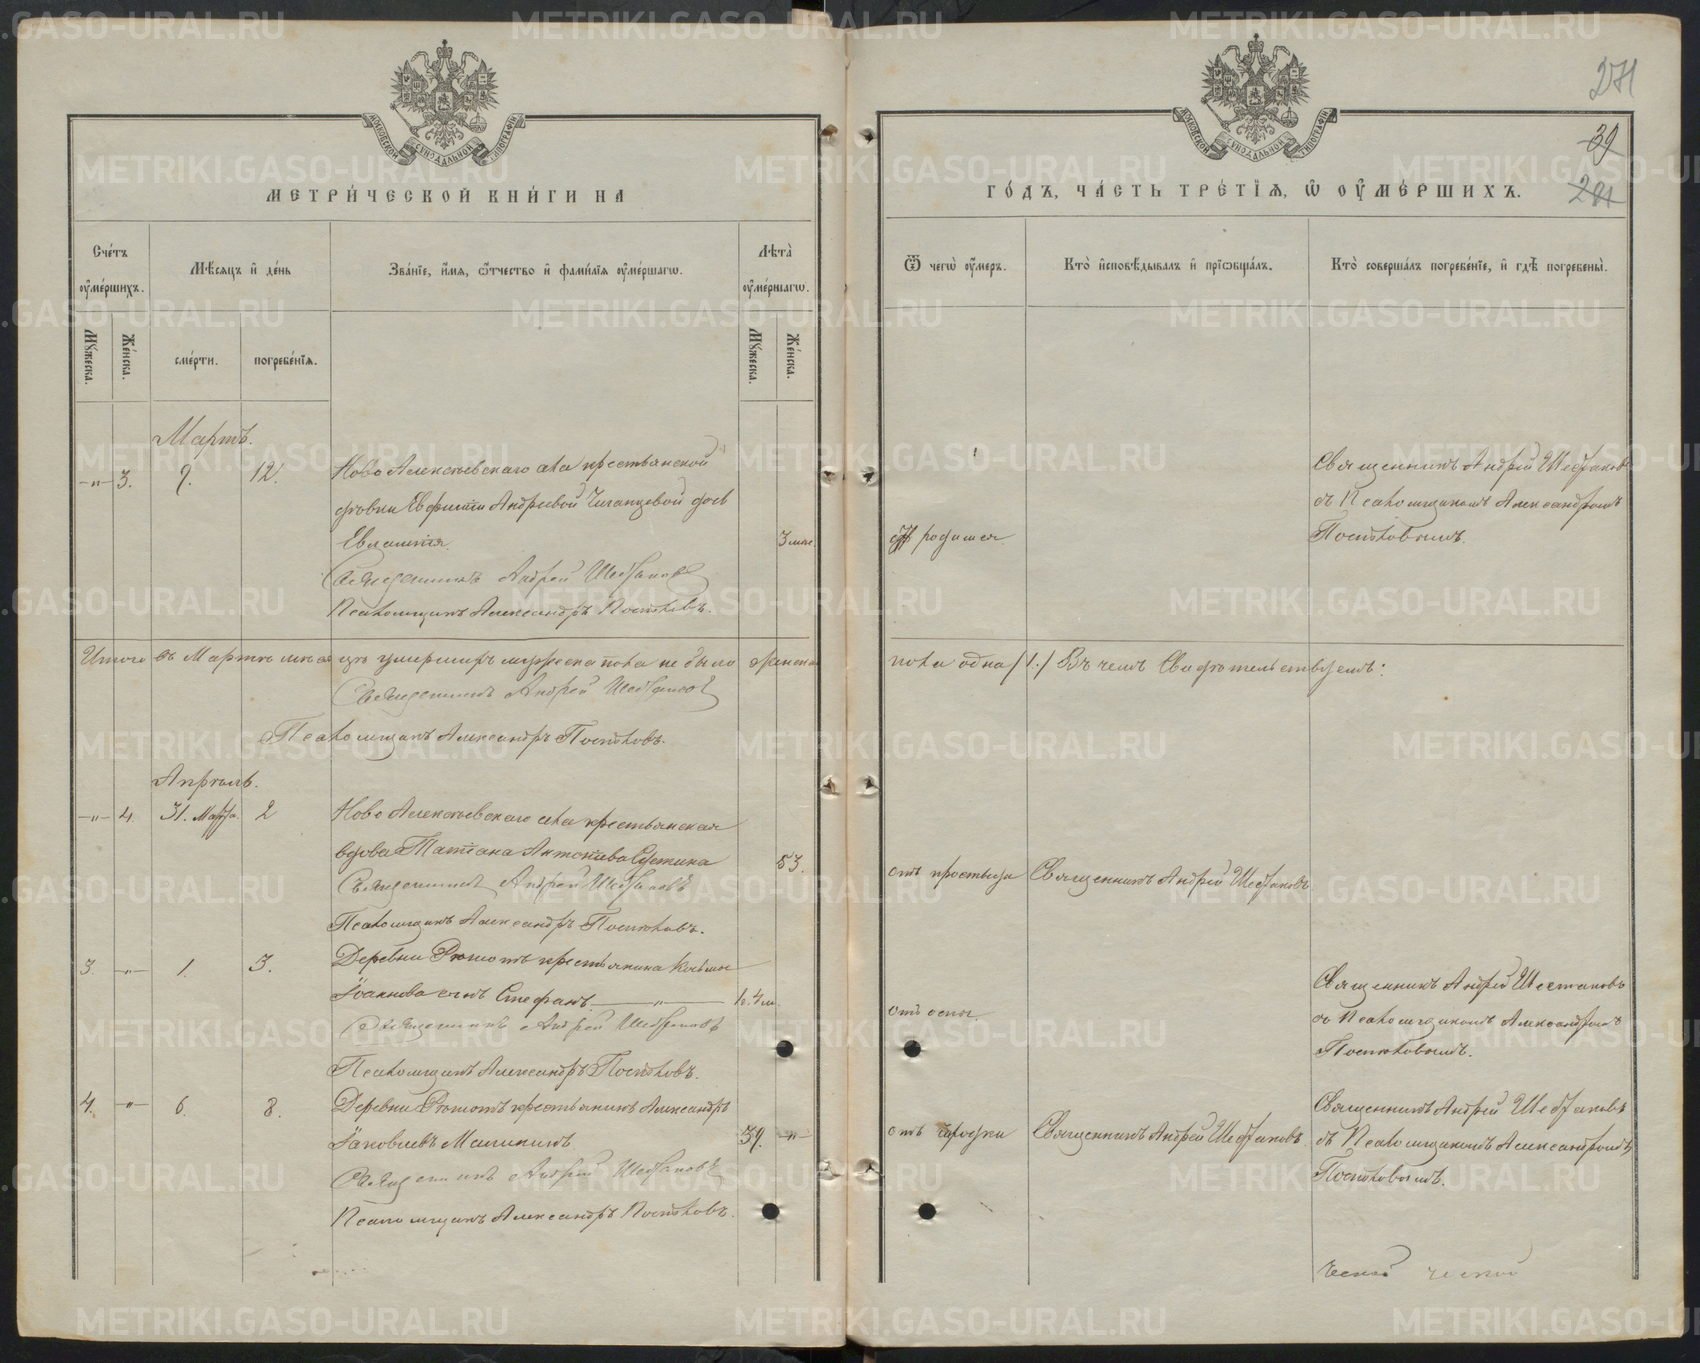 МЕТРИ́ЧЕСКОЙ КНИ́ГИ НА
Сче́тъ ᲂу҆ме́ршихъ.
Мѣ́сяцъ и҆ де́нь
Зва́нїе, и҆́мя, ѻ҆́тчество и҆ фами́лїя ᲂу҆ме́ршагѡ.
Лѣта̀ ᲂу҆ме́ршагѡ.
Мꙋ́жеска.
Же́нска.
сме́рти.
погребе́нїя.
Мꙋ́жеска.
Же́нска.
Мартъ.
—„— 3. 12.
Ново Алексѣевскаго села крестьянской
дѣвки Андреевой дочь
Евлампія 3 мѣс.
Священникъ Андрей Шестаковъ
Псаломщикъ Александръ Постниковъ.
Итого въ Мартѣ мѣсяцѣ умершихъ мужеска пола не было женска
Священникъ Андрей Шестаковъ
Псаломщикъ Александръ Постниковъ.
Апрѣль.
—„— 4. 31. Марта. 2
Ново Алексѣевскаго села крестьянская
вдова Татіана Антонова 53.
Священникъ Андрей Шестаковъ
Псаломщикъ Александръ Постниковъ.
3. —„— 1. 3.
Деревни крестьянина Косьмы
Іоаннова сынъ Стефанъ —„— 1г. 4м.
Священникъ Андрей Шестаковъ
Псаломщикъ Александръ Постниковъ.
4. —„— 6. 8.
Деревни крестьянинъ Александръ
Іаковлевъ Малининъ 39. —„—
Священникъ Андрей Шестаковъ
Псаломщикъ Александръ Постниковъ.
271
39
ГО́ДЪ, ЧА́СТЬ ТРЕ́ТЇЯ, Ѡ҆ ОУ҆МЕ́РШИХЪ.
Ѿ чегѡ̀ ᲂу҆́меръ.
Кто̀ и҆сповѣ́дывалъ и҆ прїѡбща́лъ.
Кто̀ соверша́лъ погребе́нїе, и҆ гдѣ̀ погребены̀.
родимца.
Священникъ Андрей Шестаковъ
съ Псаломщикомъ Александромъ
Постниковымъ.
пола одна /1./ Въ чемъ Свидѣтельствуемъ:
отъ простуды
Священникъ Андрей Шестаковъ
отъ оспы.
Священникъ Андрей Шестаковъ
съ Псаломщикомъ Александромъ
Постниковымъ.
отъ
Священникъ Андрей Шестаковъ
Священникъ Андрей Шестаковъ
съ Псаломщикомъ Александромъ
Постниковымъ.
METRIKI.GASO-URAL.RU